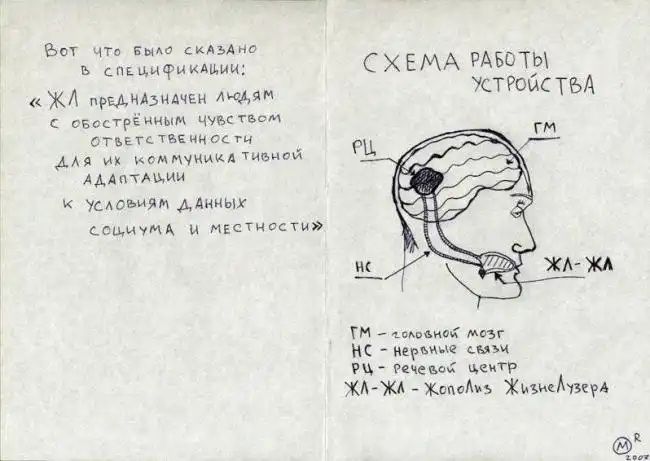 Вот что было сказано
в спецификации:
«ЖЛ предназначен людям
с обострённым чувством
ответственности
для их коммуникативной
адаптации
к условиям данных
социума и местности»
СХЕМА РАБОТЫ
УСТРОЙСТВА
ГМ
РЦ
НС
ЖЛ-ЖЛ
ГМ - головной мозг
НС - нервные связи
РЦ - речевой центр
ЖЛ-ЖЛ - ЖопоЛиз ЖизнеЛузера
M R